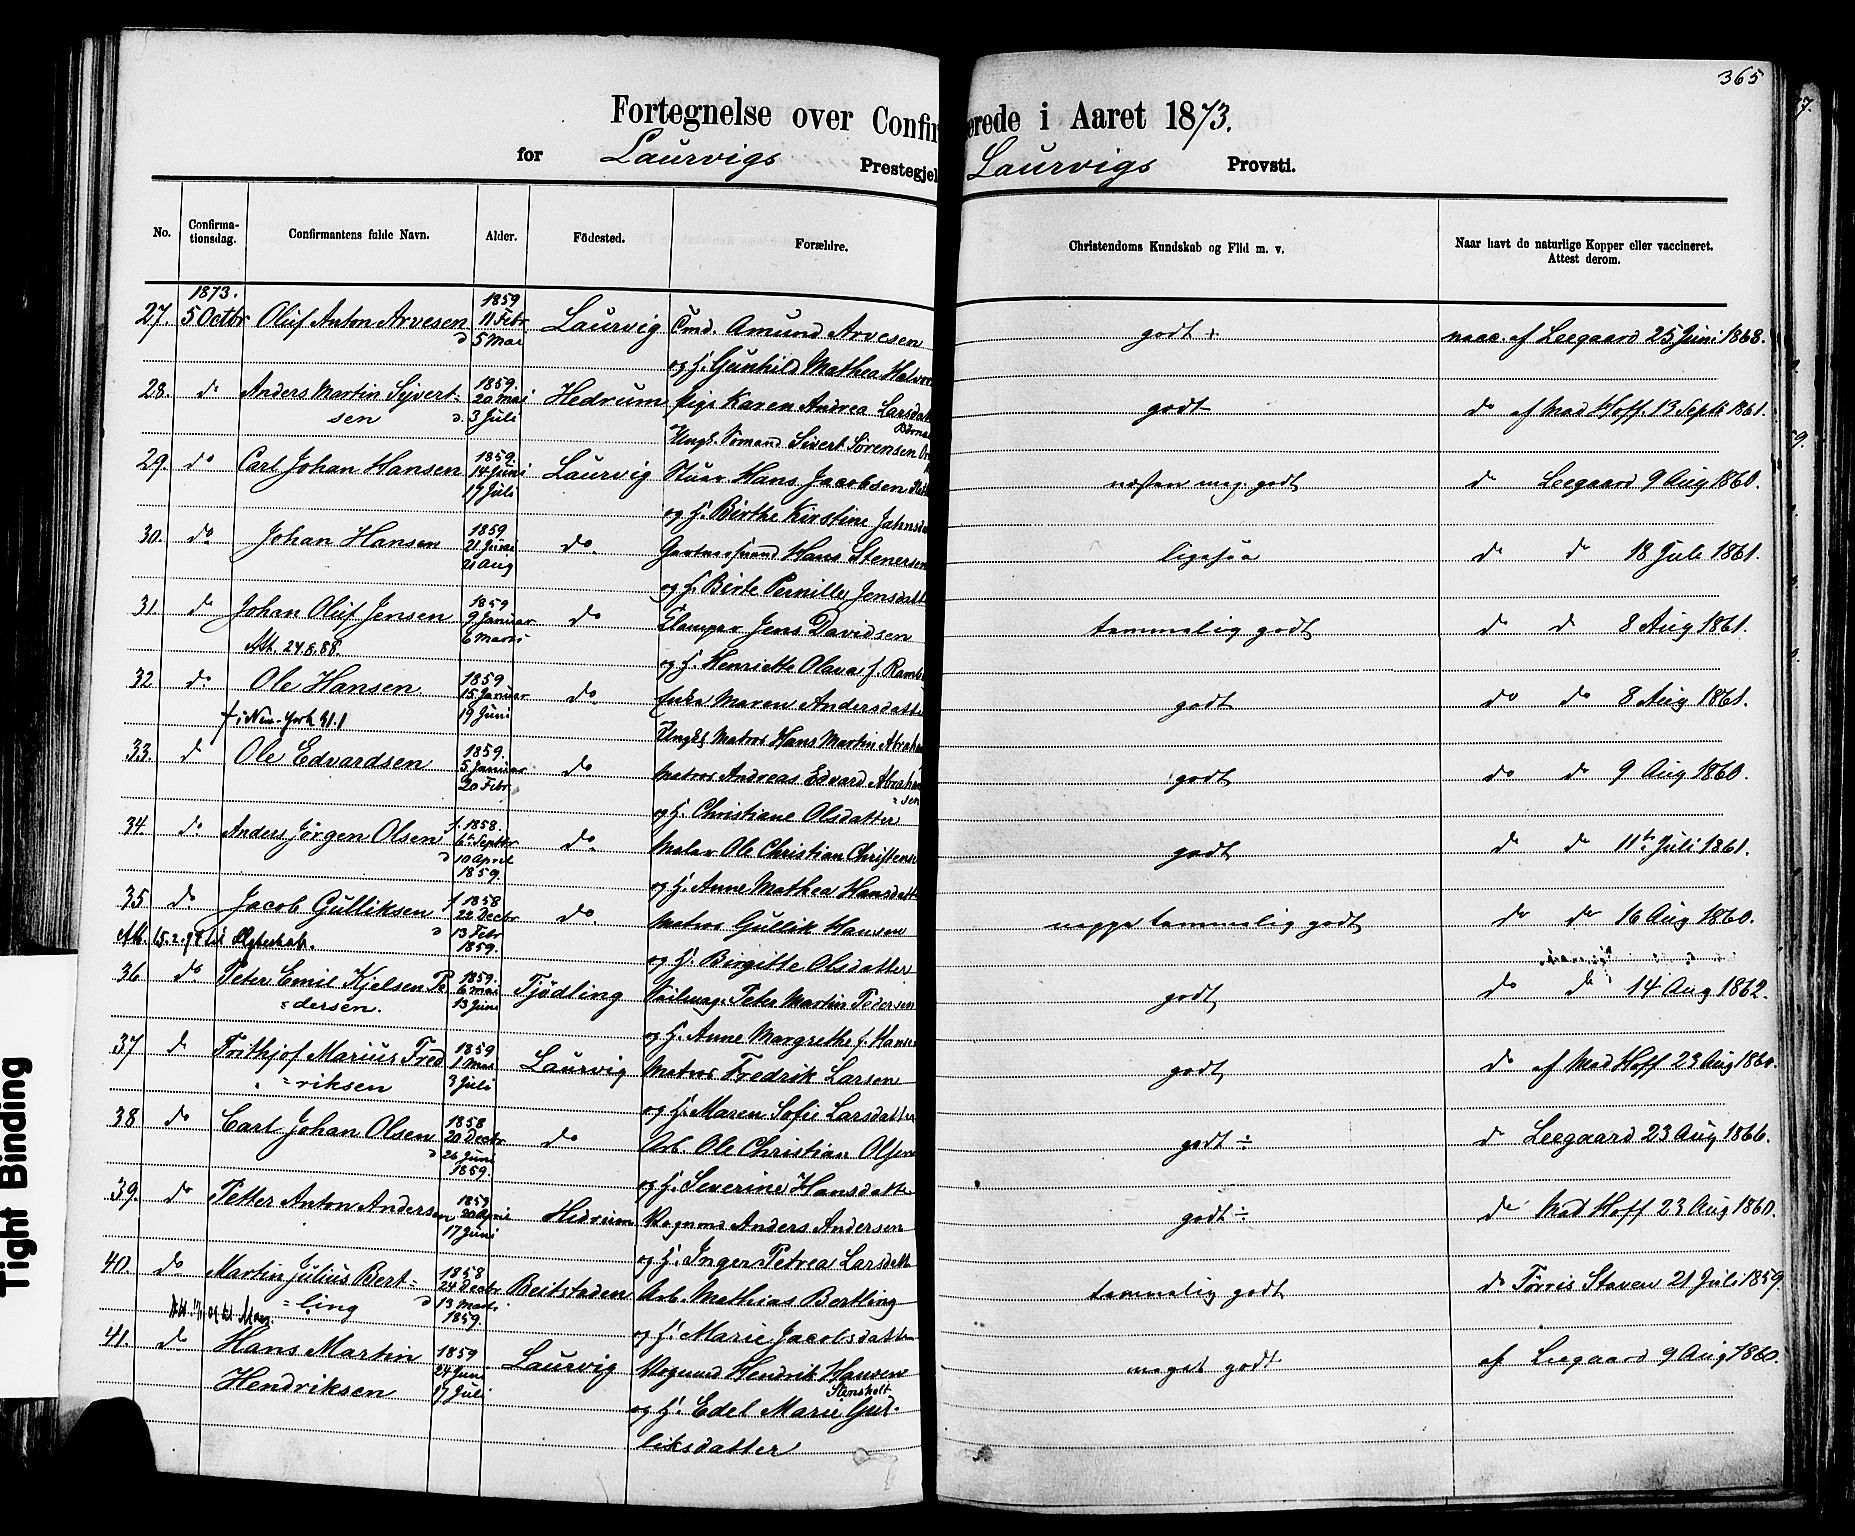 365
Fortegnelse over Confir erede i Aaret 1873.
for Laurvigs Prestegjel Laurvigs Provsti.
No. Confirma- tionsdag. Confirmantens fulde Navn. Alder. Födested. Forældre. Christendoms Kundskab og Flid m. v. Naar havt de naturlige Kopper eller vaccineret. Attest derom.
1873. 1859
27. 5 Octbr Oluf Anton Arvesen 11 Febr Laurvig Cmd. Amund Arvesen godt ÷ vacc. af Leegaard 25 Juni 1868.
5 Mai
og H. Gunhild Mathea Halvor
28. do Anders Martin Sivert- 1859. 20 Mai Hedrum Pige Karen Andrea Larsdat godt do af Mad Hoff. 13 Septb 1861.
sen 3 Juli
Ungk. Sømand Sivert Sørensen
29. do Carl Johan Hansen 1859. 14 Juni Laurvig Stuer Hans Jacobsen næsten meg. godt do Leegaard 9 Aug 1860.
17 Juli
og H. Birthe Kirstine Jahnsd
30. do Johan Hansen 1859 21 Juni do. Hans Stenersen ligesaa do do 18 Juli 1861.
21 Aug
og H. Birte Pernille Jensdatt
31. do Johan Oluf Jensen 1859 9 Januar do Jens Davidsen temmelig godt do do 8 Aug 1861.
Att. 24.8.88. 6 Marts
og H. Henriette Olava f. Ramb
32 do Ole Hansen 1859 15 Januar do Enke Maren Andersdatte godt do do 8 Aug 1861.
† i New-York 91.1 19 Juni
Ungk. Matros Hans Martin Abraham
33. d Ole Edvardsen 1859. 5 Januar do Matros Andreas Edvard Abraham godt do do 9 Aug 1860.
20 Febr = sen
og H. Christiane Olsdatter
34. do Anders Jørgen Olsen f. 1858. 6te Septbr do. Maler Ole Christian Christense godt do do 11te Juli 1861.
d 10 April
1859.
og H. Anne Mathea Hansdatt
35 do Jacob Gulliksen f. 1858 22 Decbr do. Matros Gullik Hansen neppe temmelig godt do do 16 Aug 1860.
d 13 Febr
Att. 15.2.94 til Ægteskab. 1859.
og H. Birgitte Olsdatter
36. do Peter Emil Kjelsen Pe 1859. 6 Mai Tjödling Seilmag. Peter Martin Pedersen godt do do 14 Aug 1862.
=dersen. 13 Juni
og H. Anne Margrethe f. Hans
37 d Frithjof Marius Fred 1859 1 Mai Laurvig Matros Fredrik Larsen godt do af Mad Hoff 23 Aug 1860.
=riksen 3 Juli
og H. Maren Sofie Larsdatter
38 do Carl Johan Olsen 1858 20 Decbr do Arb. Ole Christian Olsen godt ÷ d Leegaard 23 Aug 1866.
d 26 Juni
1859.
og H. Severine Hansdatte
39. do Petter Anton Andersen 1859 20 April Hedrum Vognm Anders Andersen godt ÷ do Mad Hoff 23 Aug 1860.
17 Juni
og H. Inger Petrea Larsdatt
40. do Martin Julius Bert- 1858 24 Decbr Beitstaden Arb. Mathias Bertling temmelig godt do Tørris Staven 21 Juli 1859.
=ling d 13 Marts
1859.
og H. Marie Jacobsdatte
41. do Hans Martin 1859 24 Juni Laurvig Vogmd Hendrik Hansen meget godt af Leegaard 9 Aug 1860.
Hendriksen 17 Juli Stensholt
og H. Edel Marie Gul-
liksdatter
Tight Binding